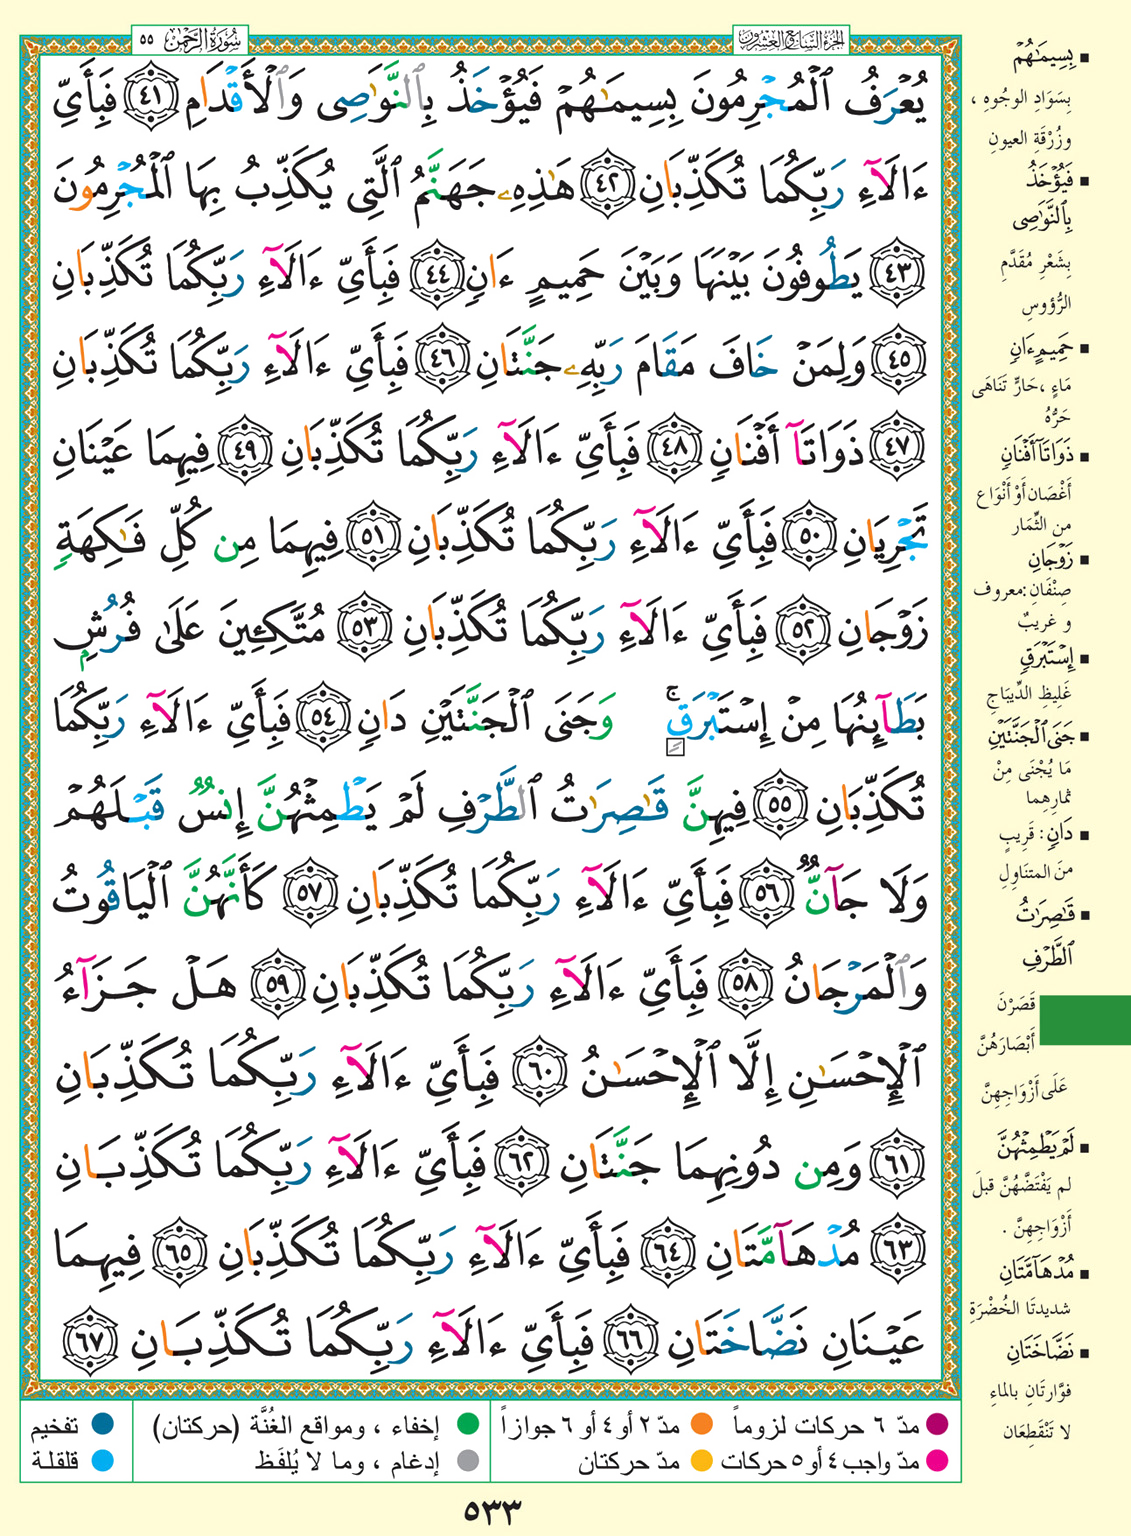 الجزء السابع والعشرون
سورة الرحمن ٥٥
يُعْرَفُ ٱلْمُجْرِمُونَ بِسِيمَٰهُمْ فَيُؤْخَذُ بِٱلنَّوَٰصِى وَٱلْأَقْدَامِ ٤١ فَبِأَىِّ
ءَالَآءِ رَبِّكُمَا تُكَذِّبَانِ ٤٢ هَٰذِهِۦ جَهَنَّمُ ٱلَّتِى يُكَذِّبُ بِهَا ٱلْمُجْرِمُونَ
٤٣ يَطُوفُونَ بَيْنَهَا وَبَيْنَ حَمِيمٍ ءَانٍ ٤٤ فَبِأَىِّ ءَالَآءِ رَبِّكُمَا تُكَذِّبَانِ
٤٥ وَلِمَنْ خَافَ مَقَامَ رَبِّهِۦ جَنَّتَانِ ٤٦ فَبِأَىِّ ءَالَآءِ رَبِّكُمَا تُكَذِّبَانِ
٤٧ ذَوَاتَآ أَفْنَانٍ ٤٨ فَبِأَىِّ ءَالَآءِ رَبِّكُمَا تُكَذِّبَانِ ٤٩ فِيهِمَا عَيْنَانِ
تَجْرِيَانِ ٥٠ فَبِأَىِّ ءَالَآءِ رَبِّكُمَا تُكَذِّبَانِ ٥١ فِيهِمَا مِن كُلِّ فَٰكِهَةٍ
زَوْجَانِ ٥٢ فَبِأَىِّ ءَالَآءِ رَبِّكُمَا تُكَذِّبَانِ ٥٣ مُتَّكِـِٔينَ عَلَىٰ فُرُشٍۭ
بَطَآئِنُهَا مِنْ إِسْتَبْرَقٍ ۚ وَجَنَى ٱلْجَنَّتَيْنِ دَانٍ ٥٤ فَبِأَىِّ ءَالَآءِ رَبِّكُمَا
تُكَذِّبَانِ ٥٥ فِيهِنَّ قَٰصِرَٰتُ ٱلطَّرْفِ لَمْ يَطْمِثْهُنَّ إِنسٌ قَبْلَهُمْ
وَلَا جَآنٌّ ٥٦ فَبِأَىِّ ءَالَآءِ رَبِّكُمَا تُكَذِّبَانِ ٥٧ كَأَنَّهُنَّ ٱلْيَاقُوتُ
وَٱلْمَرْجَانُ ٥٨ فَبِأَىِّ ءَالَآءِ رَبِّكُمَا تُكَذِّبَانِ ٥٩ هَلْ جَزَآءُ
ٱلْإِحْسَٰنِ إِلَّا ٱلْإِحْسَٰنُ ٦٠ فَبِأَىِّ ءَالَآءِ رَبِّكُمَا تُكَذِّبَانِ
٦١ وَمِن دُونِهِمَا جَنَّتَانِ ٦٢ فَبِأَىِّ ءَالَآءِ رَبِّكُمَا تُكَذِّبَانِ
٦٣ مُدْهَآمَّتَانِ ٦٤ فَبِأَىِّ ءَالَآءِ رَبِّكُمَا تُكَذِّبَانِ ٦٥ فِيهِمَا
عَيْنَانِ نَضَّاخَتَانِ ٦٦ فَبِأَىِّ ءَالَآءِ رَبِّكُمَا تُكَذِّبَانِ ٦٧
بِسِيمَٰهُمْ
بِسَوَادِ الوجُوهِ ،
وزُرْقَةِ العيونِ
فَيُؤْخَذُ
بِٱلنَّوَٰصِى
بِشَعْرِ مُقَدَّمِ
الرُّؤوسِ
حَمِيمٍ ءَانٍ
مَاءٍ ، حَارٍّ تَنَاهَى
حَرُّهُ
ذَوَاتَآ أَفْنَانٍ
أَغْصَانٍ أوْ أَنْوَاع
من الثِّمَار
زَوْجَانِ
صِنْفَانِ: معروف
و غريبٌ
إِسْتَبْرَقٍ
غَلِيظِ الدِّيبَاج
جَنَى ٱلْجَنَّتَيْنِ
مَا يُجْنَى مِنْ
ثمارِهِما
دَانٍ : قَرِيبٍ
منَ المتنَاوِلِ
قَٰصِرَٰتُ
ٱلطَّرْفِ
قَصَرْنَ
أَبْصَارَهُنَّ
عَلَى أَزْوَاجِهِنَّ
لَمْ يَطْمِثْهُنَّ
لم يَفْتَضَّهُنَّ قبلَ
أَزْوَاجِهِنَّ .
مُدْهَآمَّتَانِ
شديدتَا الخُضْرَةِ
نَضَّاخَتَانِ
فوَّارتَانِ بالماءِ
لا تَنْقَطِعَان
مدّ ٦ حركات لزوماً
مدّ ٢ أو ٤ أو ٦ جوازاً
إخفاء ، ومواقع الغُنَّة (حركتان)
تفخيم
مدّ واجب ٤ أو ٥ حركات
مدّ حركتان
إدغام ، وما لا يُلفَظ
قلقلة
٥٣٣